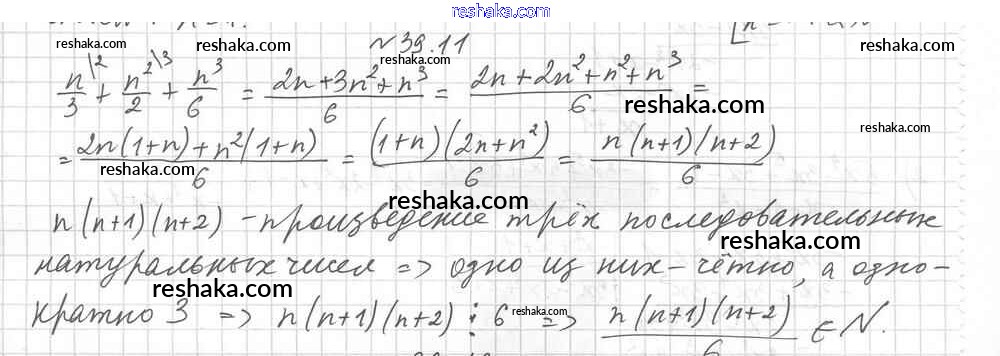 www.reshaka.com
№39.11
reshaka.com
reshaka.com
n/3 \2 + n²/2 \3 + n³/6 = (2n+3n²+n³)/6 = (2n+2n²+n²+n³)/6 =
reshaka.com
reshaka.com
= (2n(1+n)+n²(1+n))/6 = ((1+n)(2n+n²))/6 = (n(n+1)(n+2))/6
reshaka.com
reshaka.com
n(n+1)(n+2) - произведение трёх последовательных
reshaka.com
натуральных чисел => одно из них - чётно, а одно -
reshaka.com
кратно 3 => n(n+1)(n+2) ⋮ 6 => (n(n+1)(n+2))/6 ∈ N.
reshaka.com